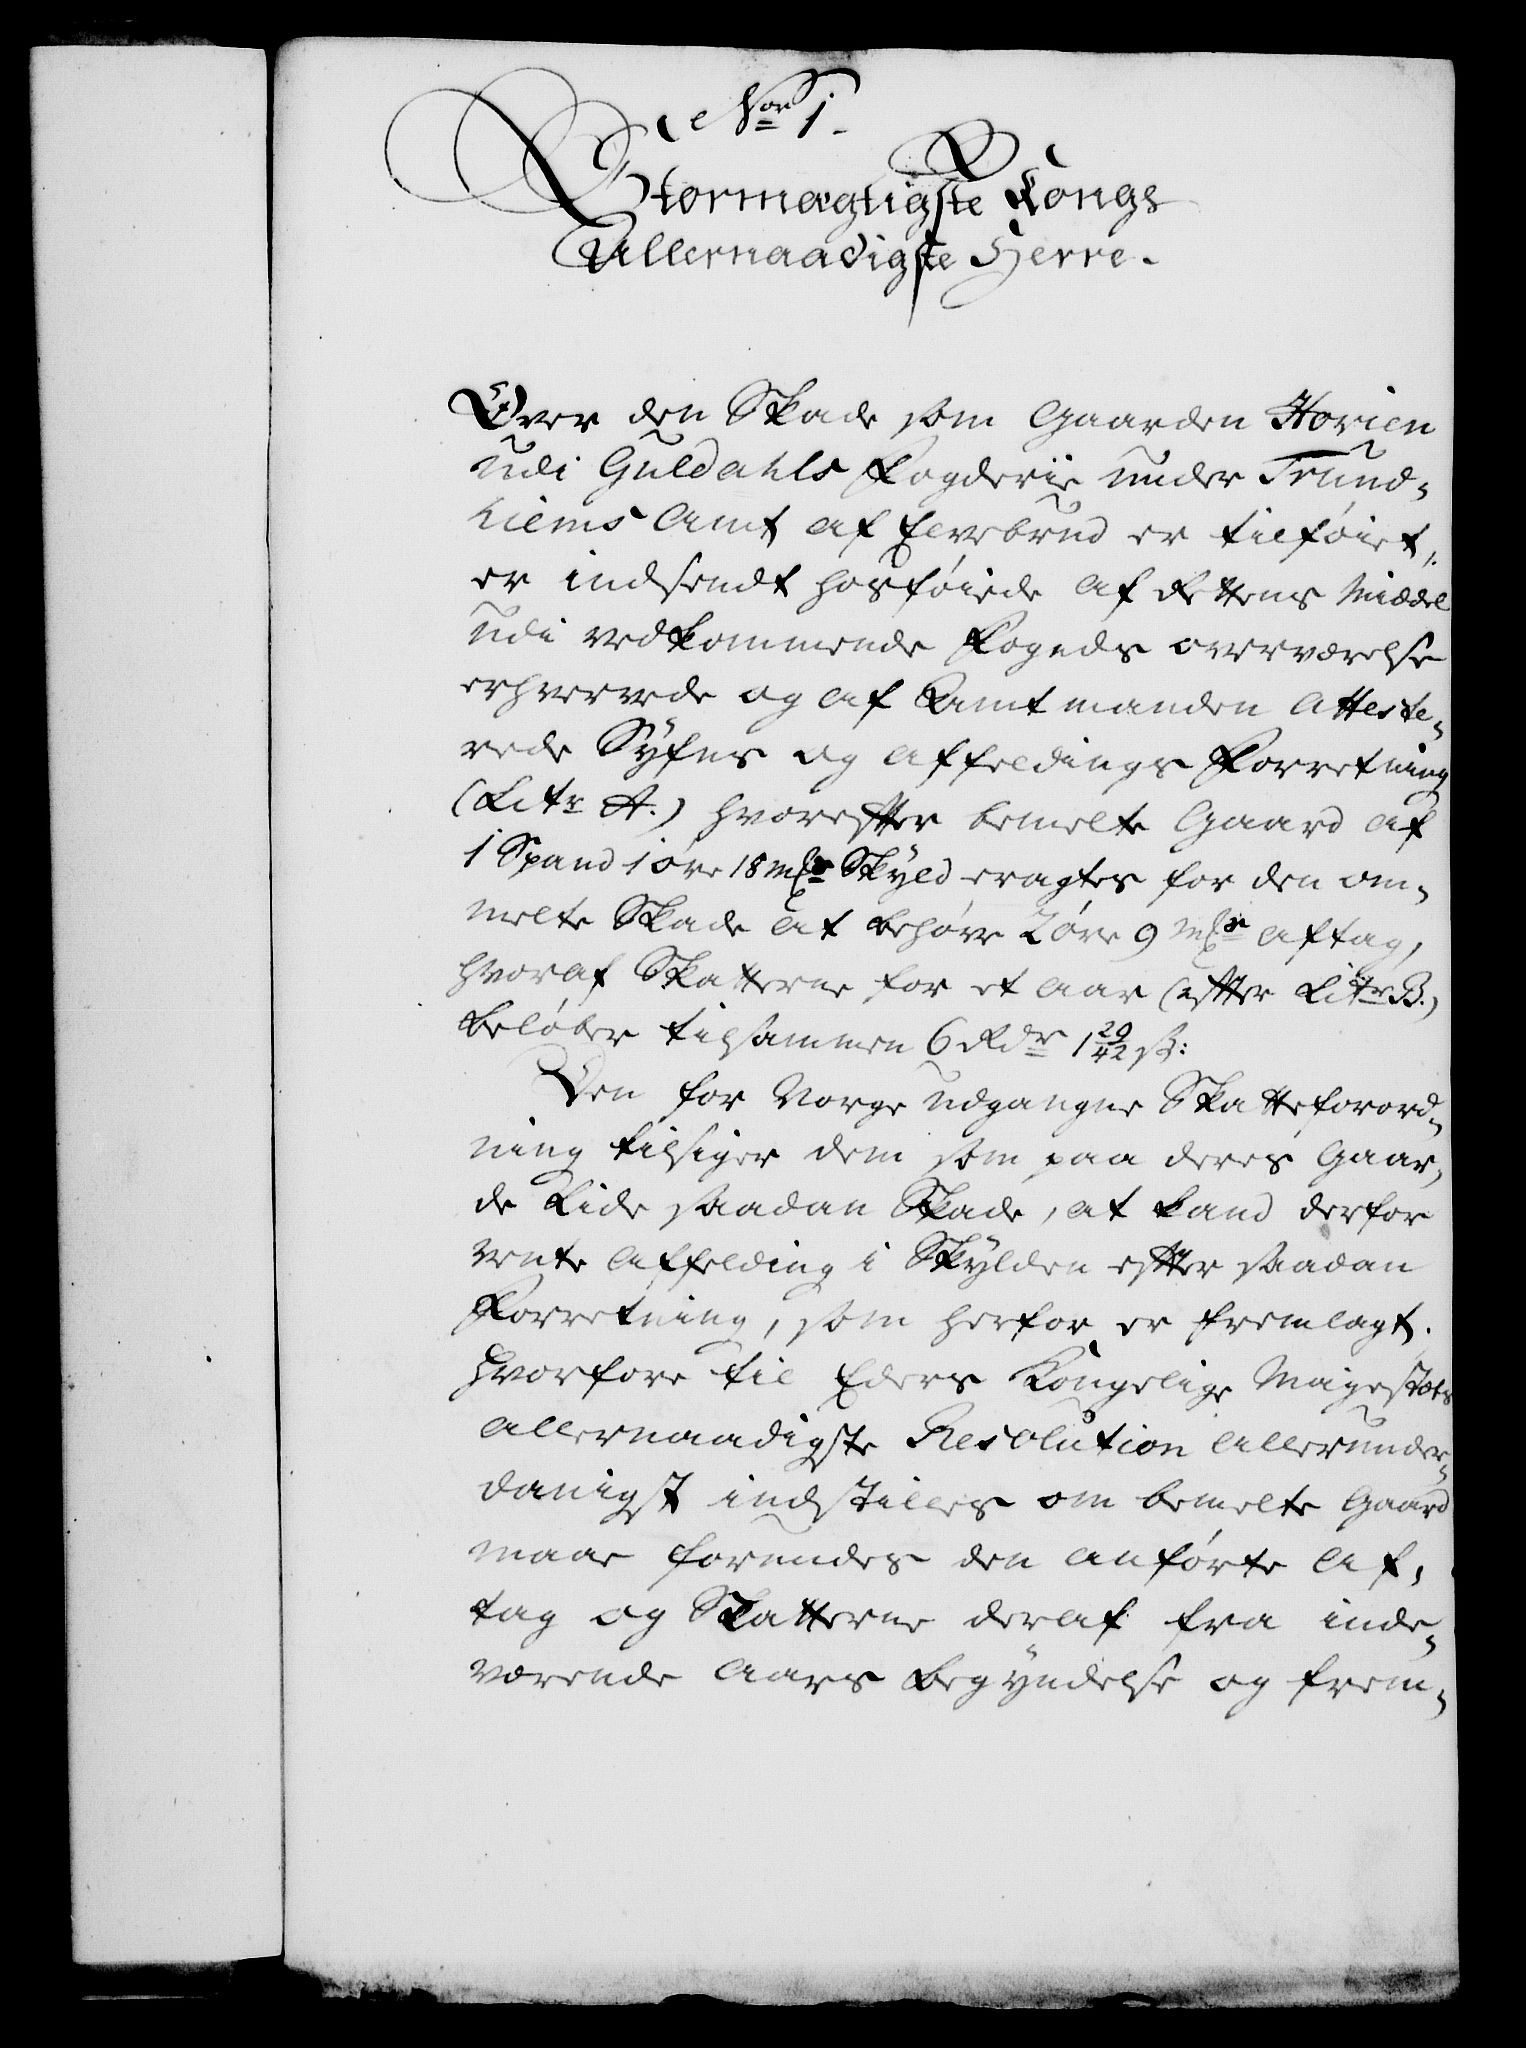 No 1.
Stormægtigste Konge
Allernaadigste Herre.
Over den Skade som Gaarden Horien
udi Guldahls Fogderie under Trund-
hiems Amt af Elvebrud er tilføiet,
er indsendt hosføiede af Rettens Middel
udi vedkommende Fogeds overværelse
erhvervede og af Amtmanden Atteste-
rede Syfns og Affældings Forretning
(Litr A.) hvorefter bemelte Gaard af
1 Spand 1 øre 18 mkr Skyld eragtes for den om-
melte Skade at behøve 2 øre 9 mkr aftag,
hvoraf Skatterne for et Aar (efter Litr B.)
beløber tilsammen 6 Rdr 1 20/42 s:
Den for Norge udgangne Skatteforord-
ning tilsiger dem som paa deres Gaar-
de Lide saadan Skade, at kand derfor
vente Affelding i Skylden efter saadan
Forretning, som herfor er fremlagt.
Hvorfore til Eders Kongelige Mayestæts
allernaadigste Resolution allerunder-
danigst indstilles om bemelte Gaard
maae forundes den anførte Af-
tag og Skatterne deraf fra inde-
værende Aars begyndelse og frem-